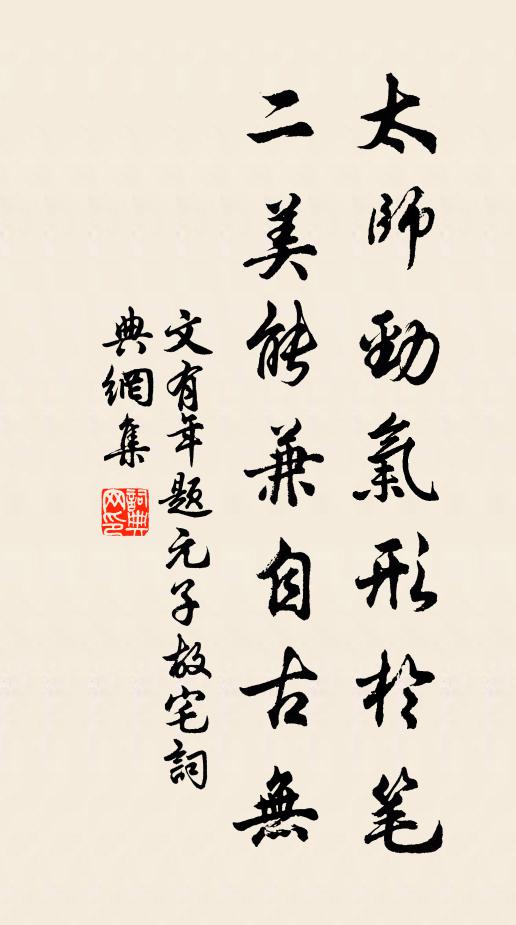 太師勁氣形於笔
二美能兼自古無
文有年題元子故宅詞
典網集
詞典
网印